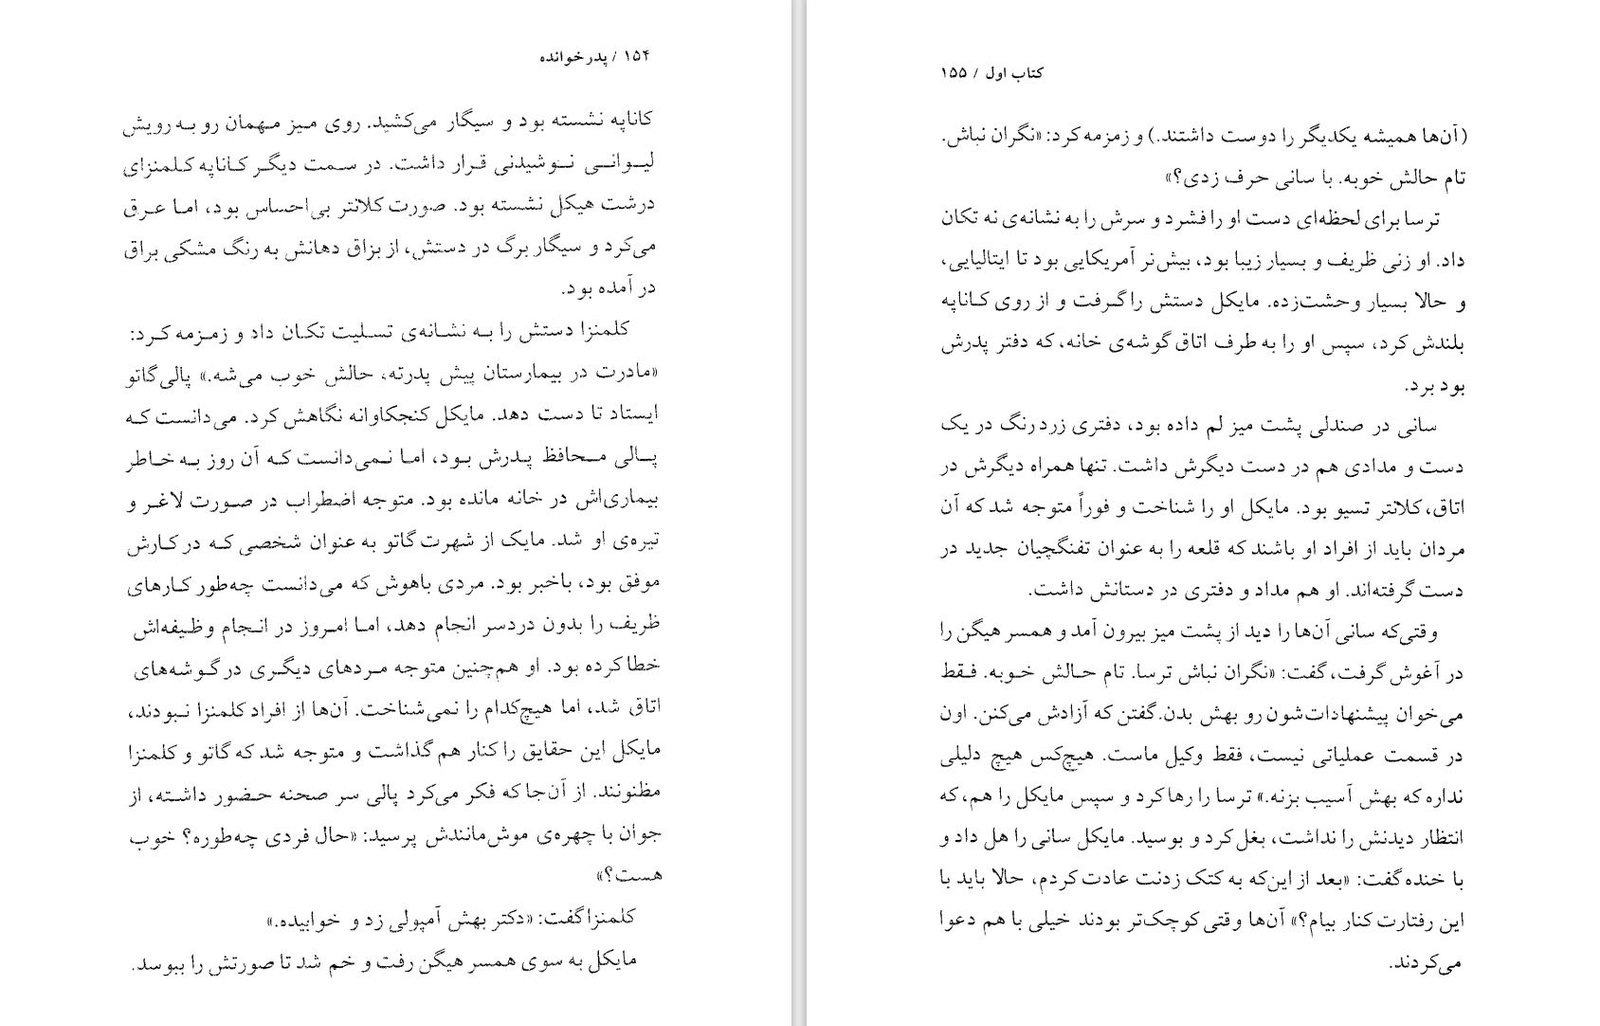 ۱۵۴ / پدرخوانده
کاناپه نشسته بود و سیگار می‌کشید. روی میز مهمان رو به رویش
لیوانی نوشیدنی قرار داشت. در سمت دیگر کاناپه کلمنزای
درشت هیکل نشسته بود. صورت کلانتر بی‌احساس بود، اما عرق
می‌کرد و سیگار برگ در دستش، از بزاق دهانش به رنگ مشکی براق
در آمده بود.
کلمنزا دستش را به نشانه‌ی تسلیت تکان داد و زمزمه کرد:
«مادرت در بیمارستان پیش پدرته، حالش خوب می‌شه.» پالی گاتو
ایستاد تا دست دهد. مایکل کنجکاوانه نگاهش کرد. می‌دانست که
پالی محافظ پدرش بود، اما نمی‌دانست که آن روز به خاطر
بیماری‌اش در خانه مانده بود. متوجه اضطراب در صورت لاغر و
تیره‌ی او شد. مایک از شهرت گاتو به عنوان شخصی که در کارش
موفق بود، باخبر بود. مردی باهوش که می‌دانست چه‌طور کارهای
ظریف را بدون دردسر انجام دهد، اما امروز در انجام وظیفه‌اش
خطا کرده بود. او هم‌چنین متوجه مردهای دیگری در گوشه‌های
اتاق شد، اما هیچ‌کدام را نمی‌شناخت. آن‌ها از افراد کلمنزا نبودند،
مایکل این حقایق را کنار هم گذاشت و متوجه شد که گاتو و کلمنزا
مظنونند. از آن‌جا که فکر می‌کرد پالی سر صحنه حضور داشته، از
جوان با چهره‌ی موش‌مانندش پرسید: «حال فردی چه‌طوره؟ خوب
هست؟»
کلمنزا گفت: «دکتر بهش آمپولی زد و خوابیده.»
مایکل به سوی همسر هیگن رفت و خم شد تا صورتش را ببوسد.
کتاب اول / ۱۵۵
(آن‌ها همیشه یکدیگر را دوست داشتند.) و زمزمه کرد: «نگران نباش.
تام حالش خوبه. با سانی حرف زدی؟»
ترسا برای لحظه‌ای دست او را فشرد و سرش را به نشانه‌ی نه تکان
داد. او زنی ظریف و بسیار زیبا بود، بیش‌تر آمریکایی بود تا ایتالیایی،
و حالا بسیار وحشت‌زده. مایکل دستش را گرفت و از روی کاناپه
بلندش کرد، سپس او را به طرف اتاق گوشه‌ی خانه، که دفتر پدرش
بود برد.
سانی در صندلی پشت میز لم داده بود، دفتری زرد رنگ در یک
دست و مدادی هم در دست دیگرش داشت. تنها همراه دیگرش در
اتاق، کلانتر تسیو بود. مایکل او را شناخت و فوراً متوجه شد که آن
مردان باید از افراد او باشند که قلعه را به عنوان تفنگچیان جدید در
دست گرفته‌اند. او هم مداد و دفتری در دستانش داشت.
وقتی‌که سانی آن‌ها را دید از پشت میز بیرون آمد و همسر هیگن را
در آغوش گرفت، گفت: «نگران نباش ترسا. تام حالش خوبه. فقط
می‌خوان پیشنهادات‌شون رو بهش بدن. گفتن که آزادش می‌کنن. اون
در قسمت عملیاتی نیست، فقط وکیل ماست. هیچ‌کس هیچ دلیلی
نداره که بهش آسیب بزنه.» ترسا را رها کرد و سپس مایکل را هم، که
انتظار دیدنش را نداشت، بغل کرد و بوسید. مایکل سانی را هل داد و
با خنده گفت: «بعد از این‌که به کتک زدنت عادت کردم، حالا باید با
این رفتارت کنار بیام؟» آن‌ها وقتی کوچک‌تر بودند خیلی با هم دعوا
می‌کردند.